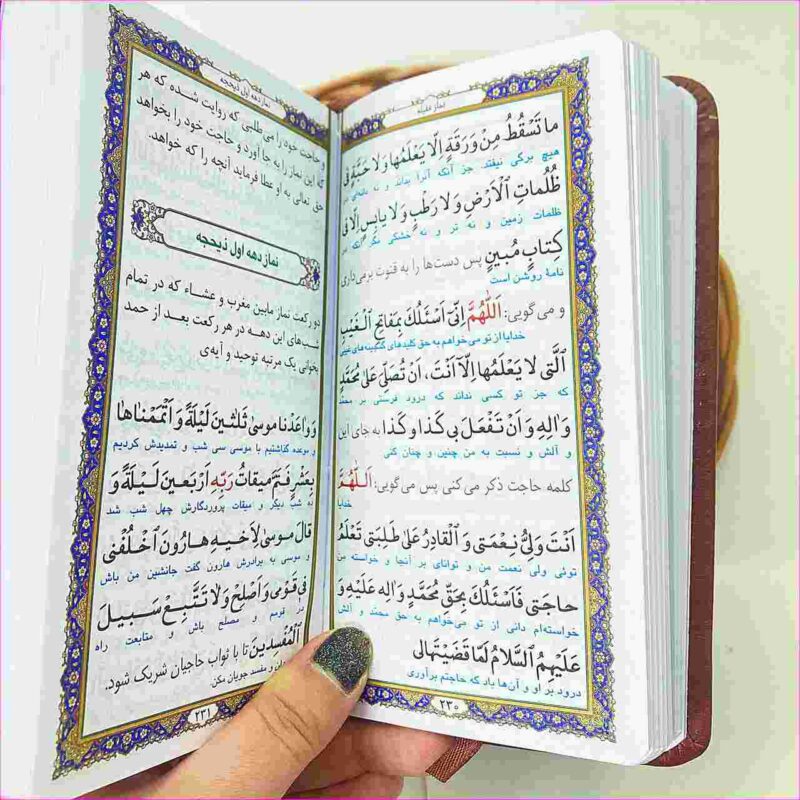 نماز غفیله
ما تَسْقُطُ مِنْ وَرَقَةٍ اِلّا يَعْلَمُها وَلا حَبَّةٍ فى
هیچ برگی نیفتد جز آنکه آنرا بداند و نه دانه‌ای در
ظُلُماتِ الْاَرْضِ وَلا رَطْبٍ وَلا يابِسٍ اِلّا فى
ظلمات زمین و نه تر و نه خشکی مگر آنکه در
كِتابٍ مُبينٍ پس دست‌ها را به قنوت برمی‌داری
نامهٔ روشن است
و می‌گویی: اَللّهُمَّ اِنّى اَسْئَلُكَ بِمَفاتِحِ الْغَيْبِ
خدایا از تو می‌خواهم به حق کلیدهای گنجینه‌های غیبی
الَّتى لا يَعْلَمُها اِلّا اَنْتَ، اَنْ تُصَلِّىَ عَلى مُحَمَّدٍ
که جز تو کسی نداند که درود فرستی بر محمد
وَالِهِ وَ اَنْ تَفْعَلَ بى كَذا وَ كَذا به جای این
و آلش و نسبت به من چنین و چنان کنی
کلمه حاجت ذکر می کنی پس می‌گویی: اَللّهُمَّ
خدایا
اَنْتَ وَلِىُّ نِعْمَتى وَ الْقادِرُ عَلى طَلِبَتى تَعْلَمُ
توئی ولی نعمت من و توانای بر آنجا و خواسته من
حاجَتى فَاَسْئَلُكَ بِحَقِّ مُحَمَّدٍ وَ الِهِ عَلَيْهِ وَ
خواسته‌ام دانی از تو می‌خواهم به حق محمّد و آلش
عَلَيْهِمُ السَّلامُ لَمّا قَضَيْتَها لى
درود بر او و آن‌ها باد که حاجتم برآوری
۲۳۰
نماز دهه اول ذیحجه
و حاجت خود را می طلبی که روایت شده که هر
که این نماز را به جا آورد و حاجت خود را بخواهد
حق تعالی به او عطا فرماید آنچه را که خواهد.
نماز دهه اول ذیحجه
دو رکعت نماز مابین مغرب و عشاء که در تمام
شب‌های این دهه در هر رکعت بعد از حمد
بخوانی یک مرتبه توحید و آیه‌ی
وَ واعَدْنا موسى ثَلثينَ لَيْلَةً وَ اَتْمَمْناها
و موعده گذاشتیم با موسی سی شب و تمدیدش کردیم
بِعَشْرٍ فَتَمَّ ميقاتُ رَبِّهِ اَرْبَعينَ لَيْلَةً وَ
ده شب دیگر و میقات پروردگارش چهل شب شد
قالَ موسى لِاَخيهِ هارُونَ اخْلُفْنى
و موسی به برادرش هارون گفت جانشین من باش
فى قَوْمى وَ اَصْلِحْ وَلا تَتَّبِعْ سَبيلَ
در قومم و مصلح باش و متابعت راه
الْمُفْسِدينَ تا با ثواب حاجیان شریک شود.
و مفسد جویان مکن
۲۳۱